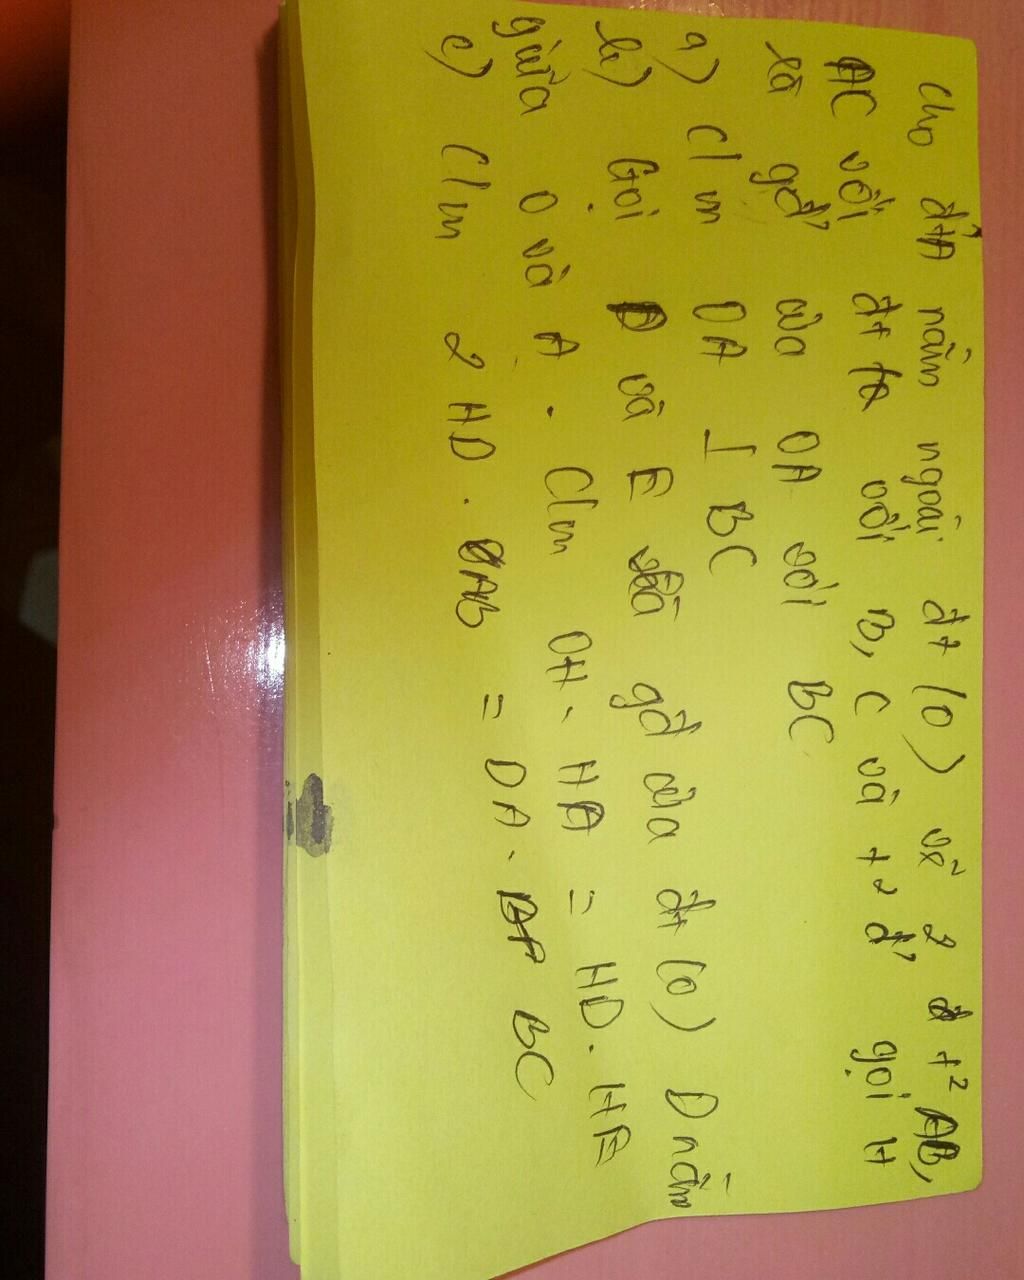 Cho đ'A nằm ngoài đt (O) vẽ 2 đt² AB,
AC với đt (O với B, C và t² đ' gọi H
là gđ' của OA với BC
a) C/m OA ⊥ BC
b) Gọi D và E là gđ của đt (O) D nằm
giữa O và A. C/m OH. HA = HD. HE
c) C/m 2 HD. AB = DA. BC